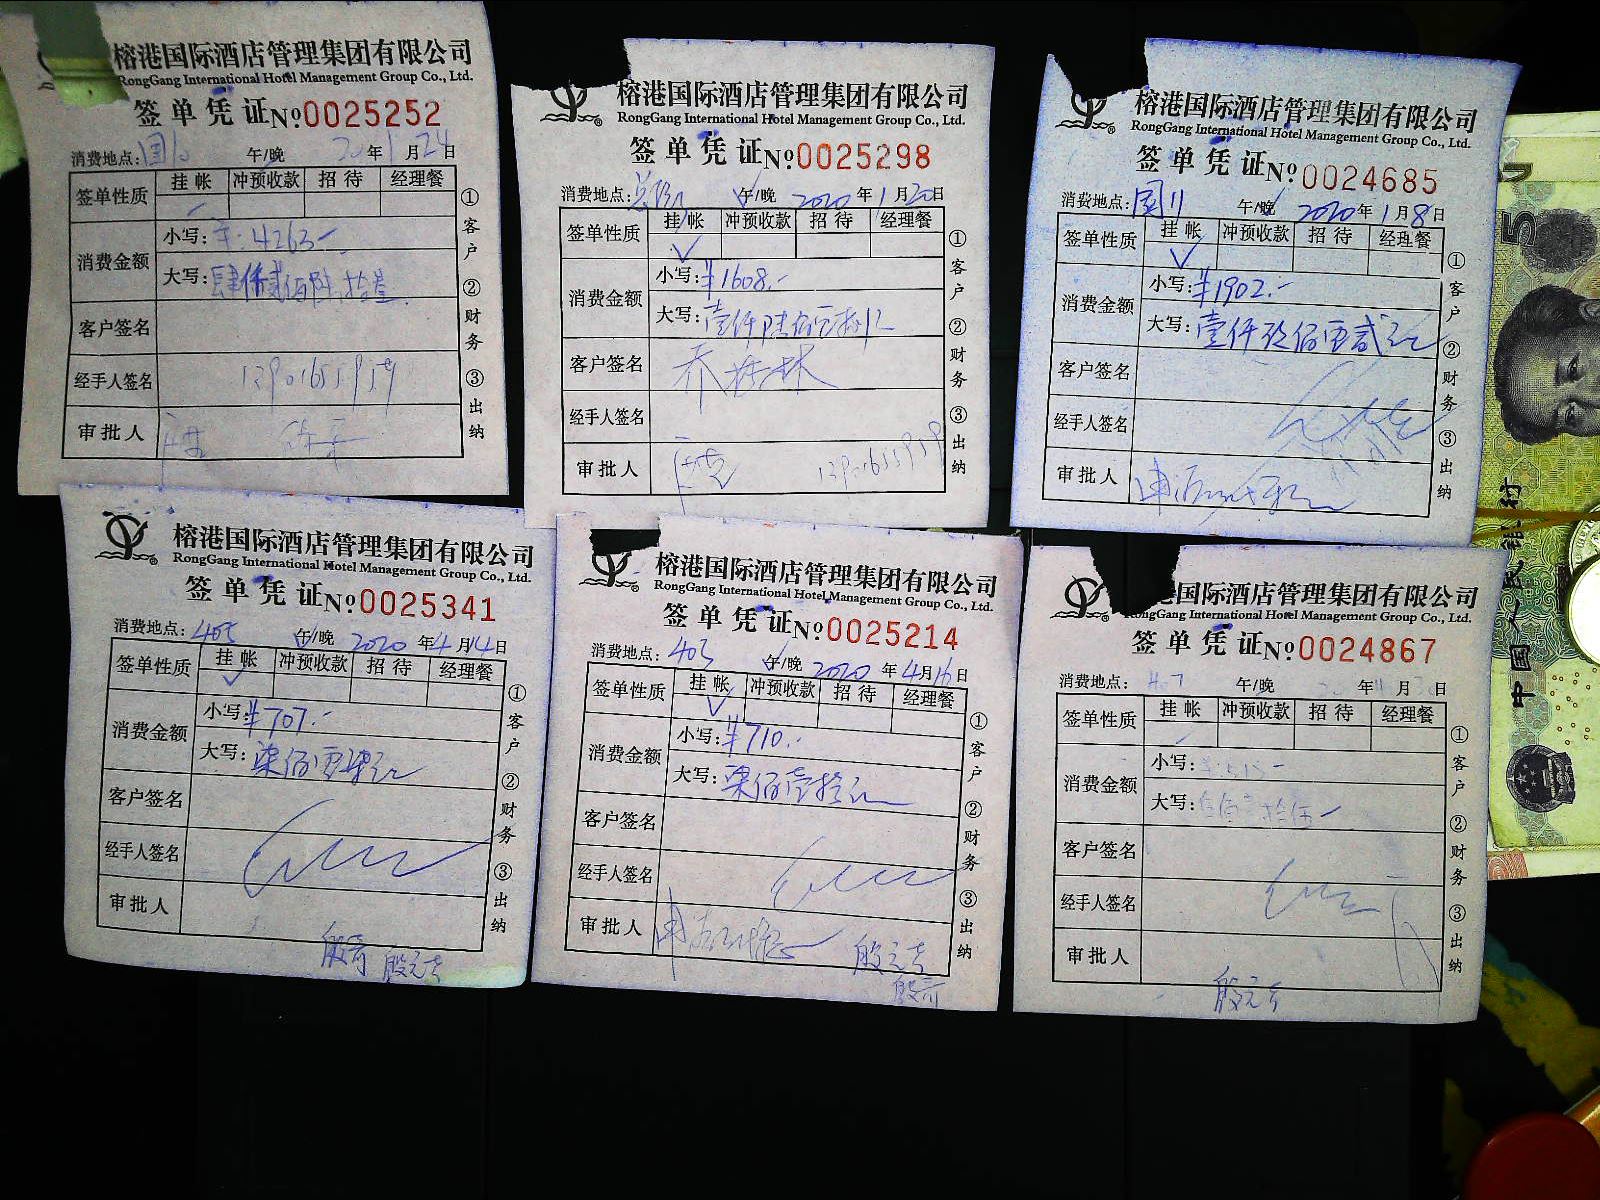 榕港国际酒店管理集团有限公司
RongGang International Hotel Management Group Co., Ltd.
签单凭证 No.0025252
消费地点: 午/晚 20年1月24日
签单性质 挂帐 冲预收款 招待 经理餐
消费金额 小写: ¥:4263-
大写: 肆仟贰佰陆拾叁
客户签名
经手人签名 13901655959
审批人
①客户 ②财务 ③出纳
榕港国际酒店管理集团有限公司
RongGang International Hotel Management Group Co., Ltd.
签单凭证 No.0025298
消费地点: 午/晚 2020年1月20日
签单性质 挂帐 冲预收款 招待 经理餐
消费金额 小写: ¥1608.-
大写: 壹仟陆佰零捌元
客户签名
经手人签名
审批人 13901655959
①客户 ②财务 ③出纳
榕港国际酒店管理集团有限公司
RongGang International Hotel Management Group Co., Ltd.
签单凭证 No.0024685
消费地点: 午/晚 2020年1月8日
签单性质 挂帐 冲预收款 招待 经理餐
消费金额 小写: ¥1902.-
大写: 壹仟玖佰零贰元
客户签名
经手人签名
审批人
①客户 ②财务 ③出纳
榕港国际酒店管理集团有限公司
RongGang International Hotel Management Group Co., Ltd.
签单凭证 No.0025341
消费地点: 405 午/晚 2020年4月14日
签单性质 挂帐 冲预收款 招待 经理餐
消费金额 小写: ¥707.-
大写: 柒佰零柒元
客户签名
经手人签名
审批人
殷元吉
①客户 ②财务 ③出纳
榕港国际酒店管理集团有限公司
RongGang International Hotel Management Group Co., Ltd.
签单凭证 No.0025214
消费地点: 403 午/晚 2020年4月16日
签单性质 挂帐 冲预收款 招待 经理餐
消费金额 小写: ¥710.-
大写: 柒佰壹拾元
客户签名
经手人签名
审批人 殷元吉
①客户 ②财务 ③出纳
国际酒店管理集团有限公司
RongGang International Hotel Management Group Co., Ltd.
签单凭证 No.0024867
消费地点: 午/晚 年 月 日
签单性质 挂帐 冲预收款 招待 经理餐
消费金额 小写:
大写:
客户签名
经手人签名
审批人
殷元吉
①客户 ②财务 ③出纳
5
中国人民银行